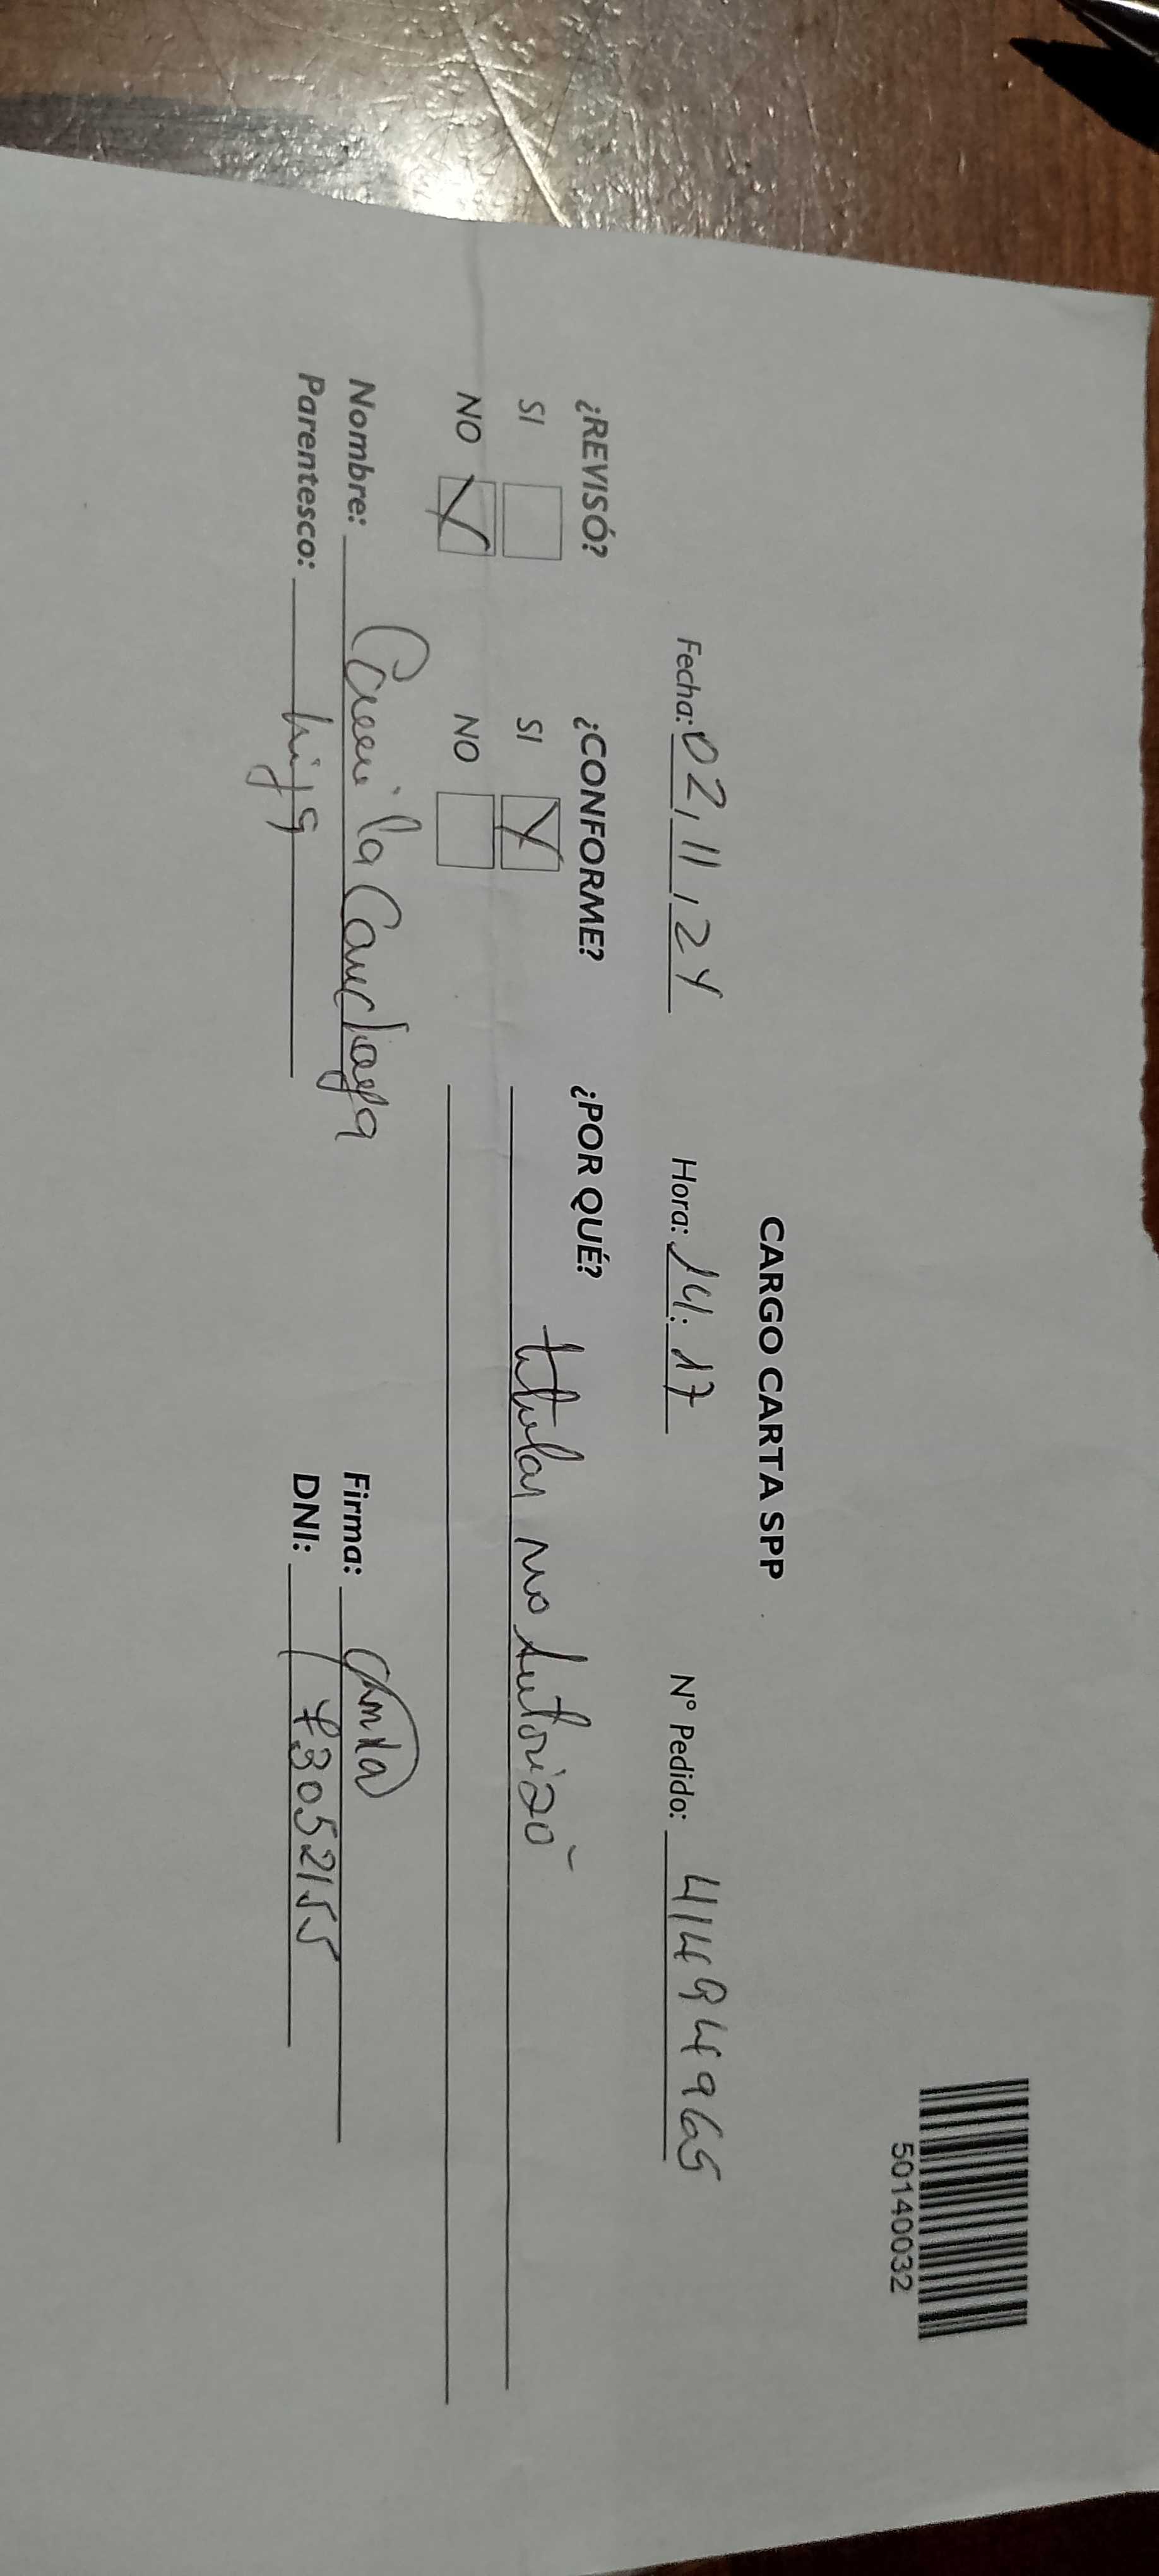 50140032
CARGO CARTA SPP
Fecha: 02, 11, 24 Hora: 14:17 N° Pedido: 41494965
¿REVISÓ? ¿CONFORME? ¿POR QUÉ?
SI SI titular no autorizó
NO NO
Nombre: Camila Firma: Camila
Parentesco: hija DNI: 73052155